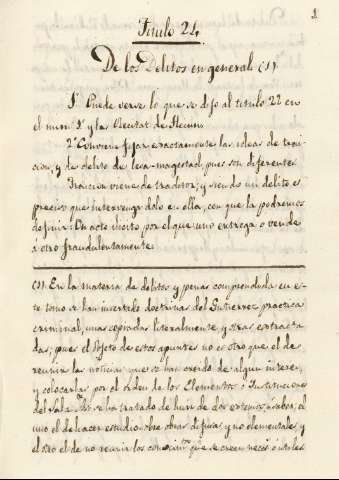 1
Titulo 24.
De los Delitos en general (1).
1º Puede verse lo que se dijo al titulo 22 en
el num. 1º y la
2º Conviene fijar exactamente las ideas de trai
cion, y de delito de lesa-magestad, pues son diferentes
Traicion viene de traidor; y siendo un delito es
preciso que intervenga dolo en ella, con que la podremos
definir: Un acto ilicito, por el que uno entrega o vende
á otro fraudulentamente.
(1). En la materia de delitos y penas comprendida en es-
te tomo se han insertado doctrinas del Gutierrez practica
criminal, unas copiadas literalmente, y otras extracta
das; pues el objeto de estos apuntes no es otro que el de
reunir las noticias que se han creido de algun interes,
y colocarlas por el orden de los Elementos o Instituciones
del Sala. se ha tratado de huir de dos extremos, á saber, el
uno el de hacer estudio sobre obras difusas y no elementales y
el otro el de no reunir los que se creen neces. o utiles